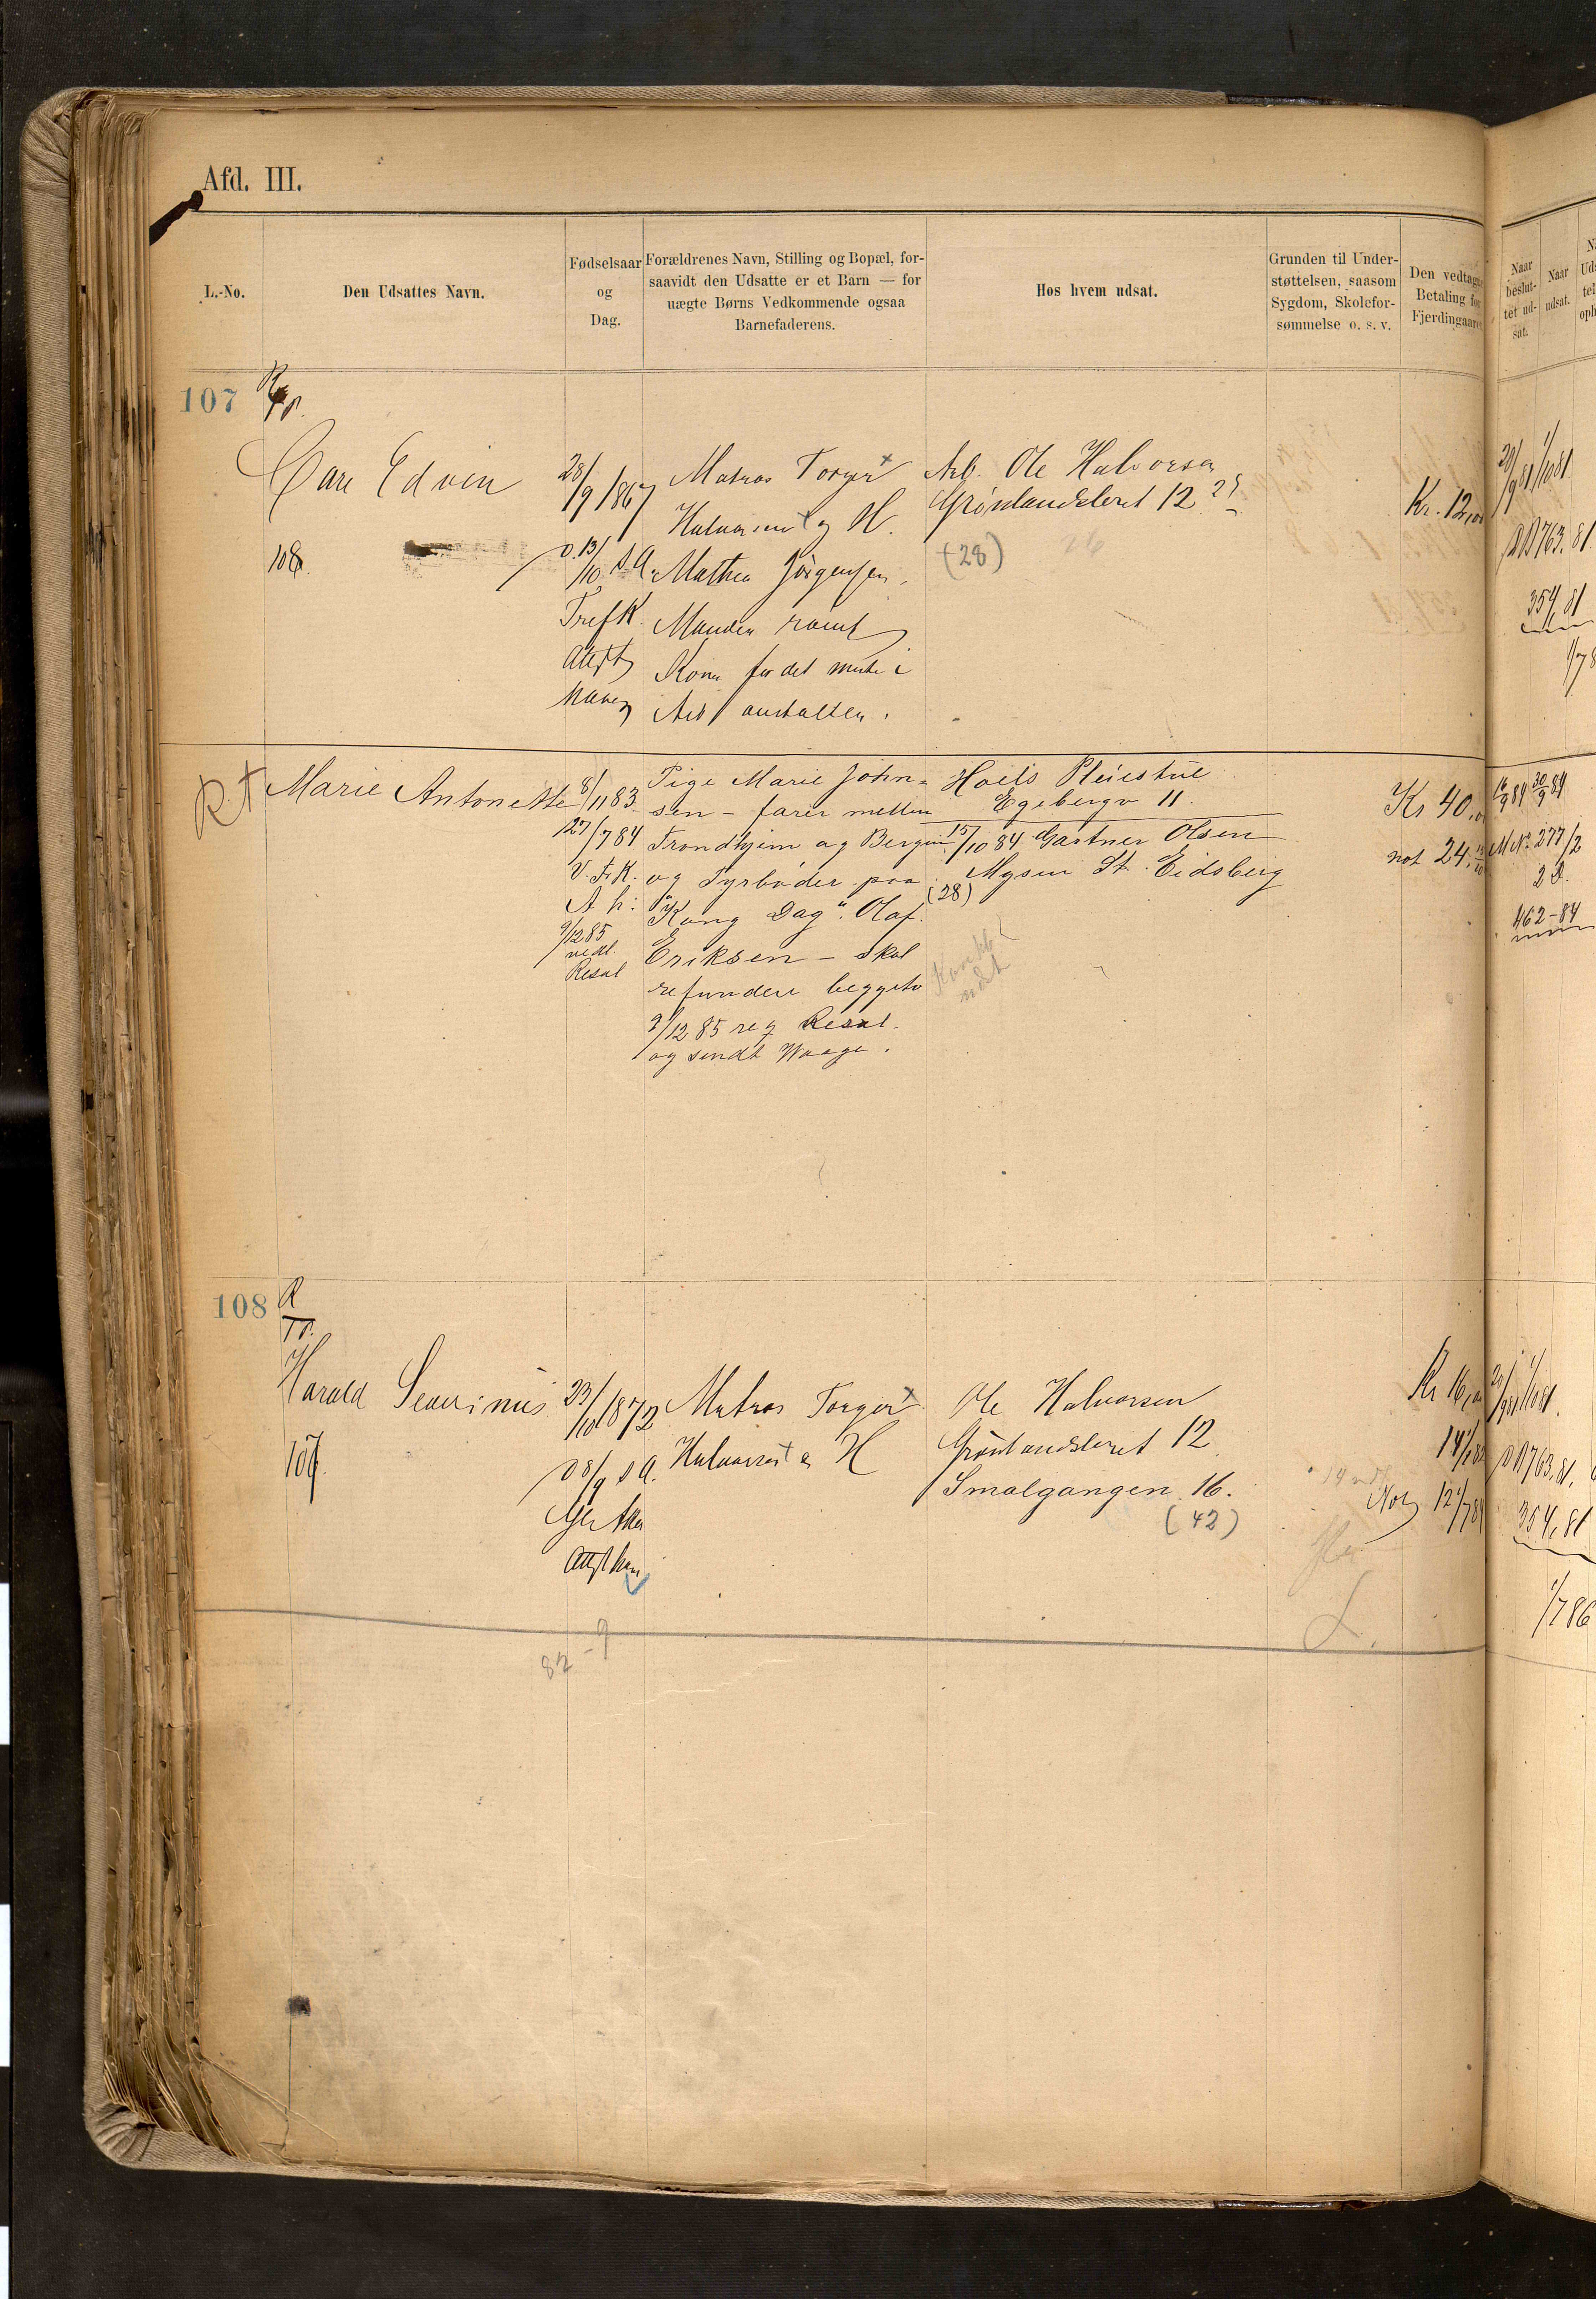 Afd. III.
L.-No.
Den Udsattes Navn.
Fødselsaar
og
Dag.
Forældrenes Navn, Stilling og Bopæl, for-
saavidt den Udsatte er et Barn — for
uægte Børns Vedkommende ogsaa
Barnefaderens.
Hos hvem udsat.
Grunden til Under-
støttelsen, saasom
Sygdom, Skolefor-
sømmelse o. s. v.
Den vedtagne
Betaling for
Fjerdingaaret
Naar
beslut-
tet ud-
sat.
Naar
udsat.
107
Carl Edvin
108.
28/9 1867
D. 13/10 s. A.
Tref K.
Attest
haves
Matros Torger
Halvorsen † og H.
Mathea Jörgensen.
Manden rømt
Kone for det meste i
Arb anstalten.
Arb. Ole Halvorsen
Grønlandsleret 12
(28)
26
Kr. 12,00
20/9 81 1/10 81
763. 81
354, 81
R †
Marie Antonette
8/11 83
27/7 84
V. F. K.
A h:
9/12 85
vedl.
Resol
Pige Marie John-
sen – farer mellem
Trondhjem og Bergen
og Fyrbøder paa
"Kong Dag". Olaf
Eriksen – skal
refundere
9/12 85 Resol.
og sendt Waage.
Hoels Pleiestue
Egebergv 11.
15/10 84 Gartner Olsen
Mysen St. Eidsberg
(28)
Kr 40,
not 24,
16/9 84 30/9 84
M No 277/2
462-84
108
R
Harald Severinus
107.
23/10 1872
D 8/9 s A.
Attest
82 - 9
Matros Torger
Halvorsen † & H
Ole Halvorsen
Grønlandsleret 12
Smalgangen 16.
(42)
Kr 16,00
14 1/1 82
Not 12 1/7 84
763, 81,
354, 81
1/7 86